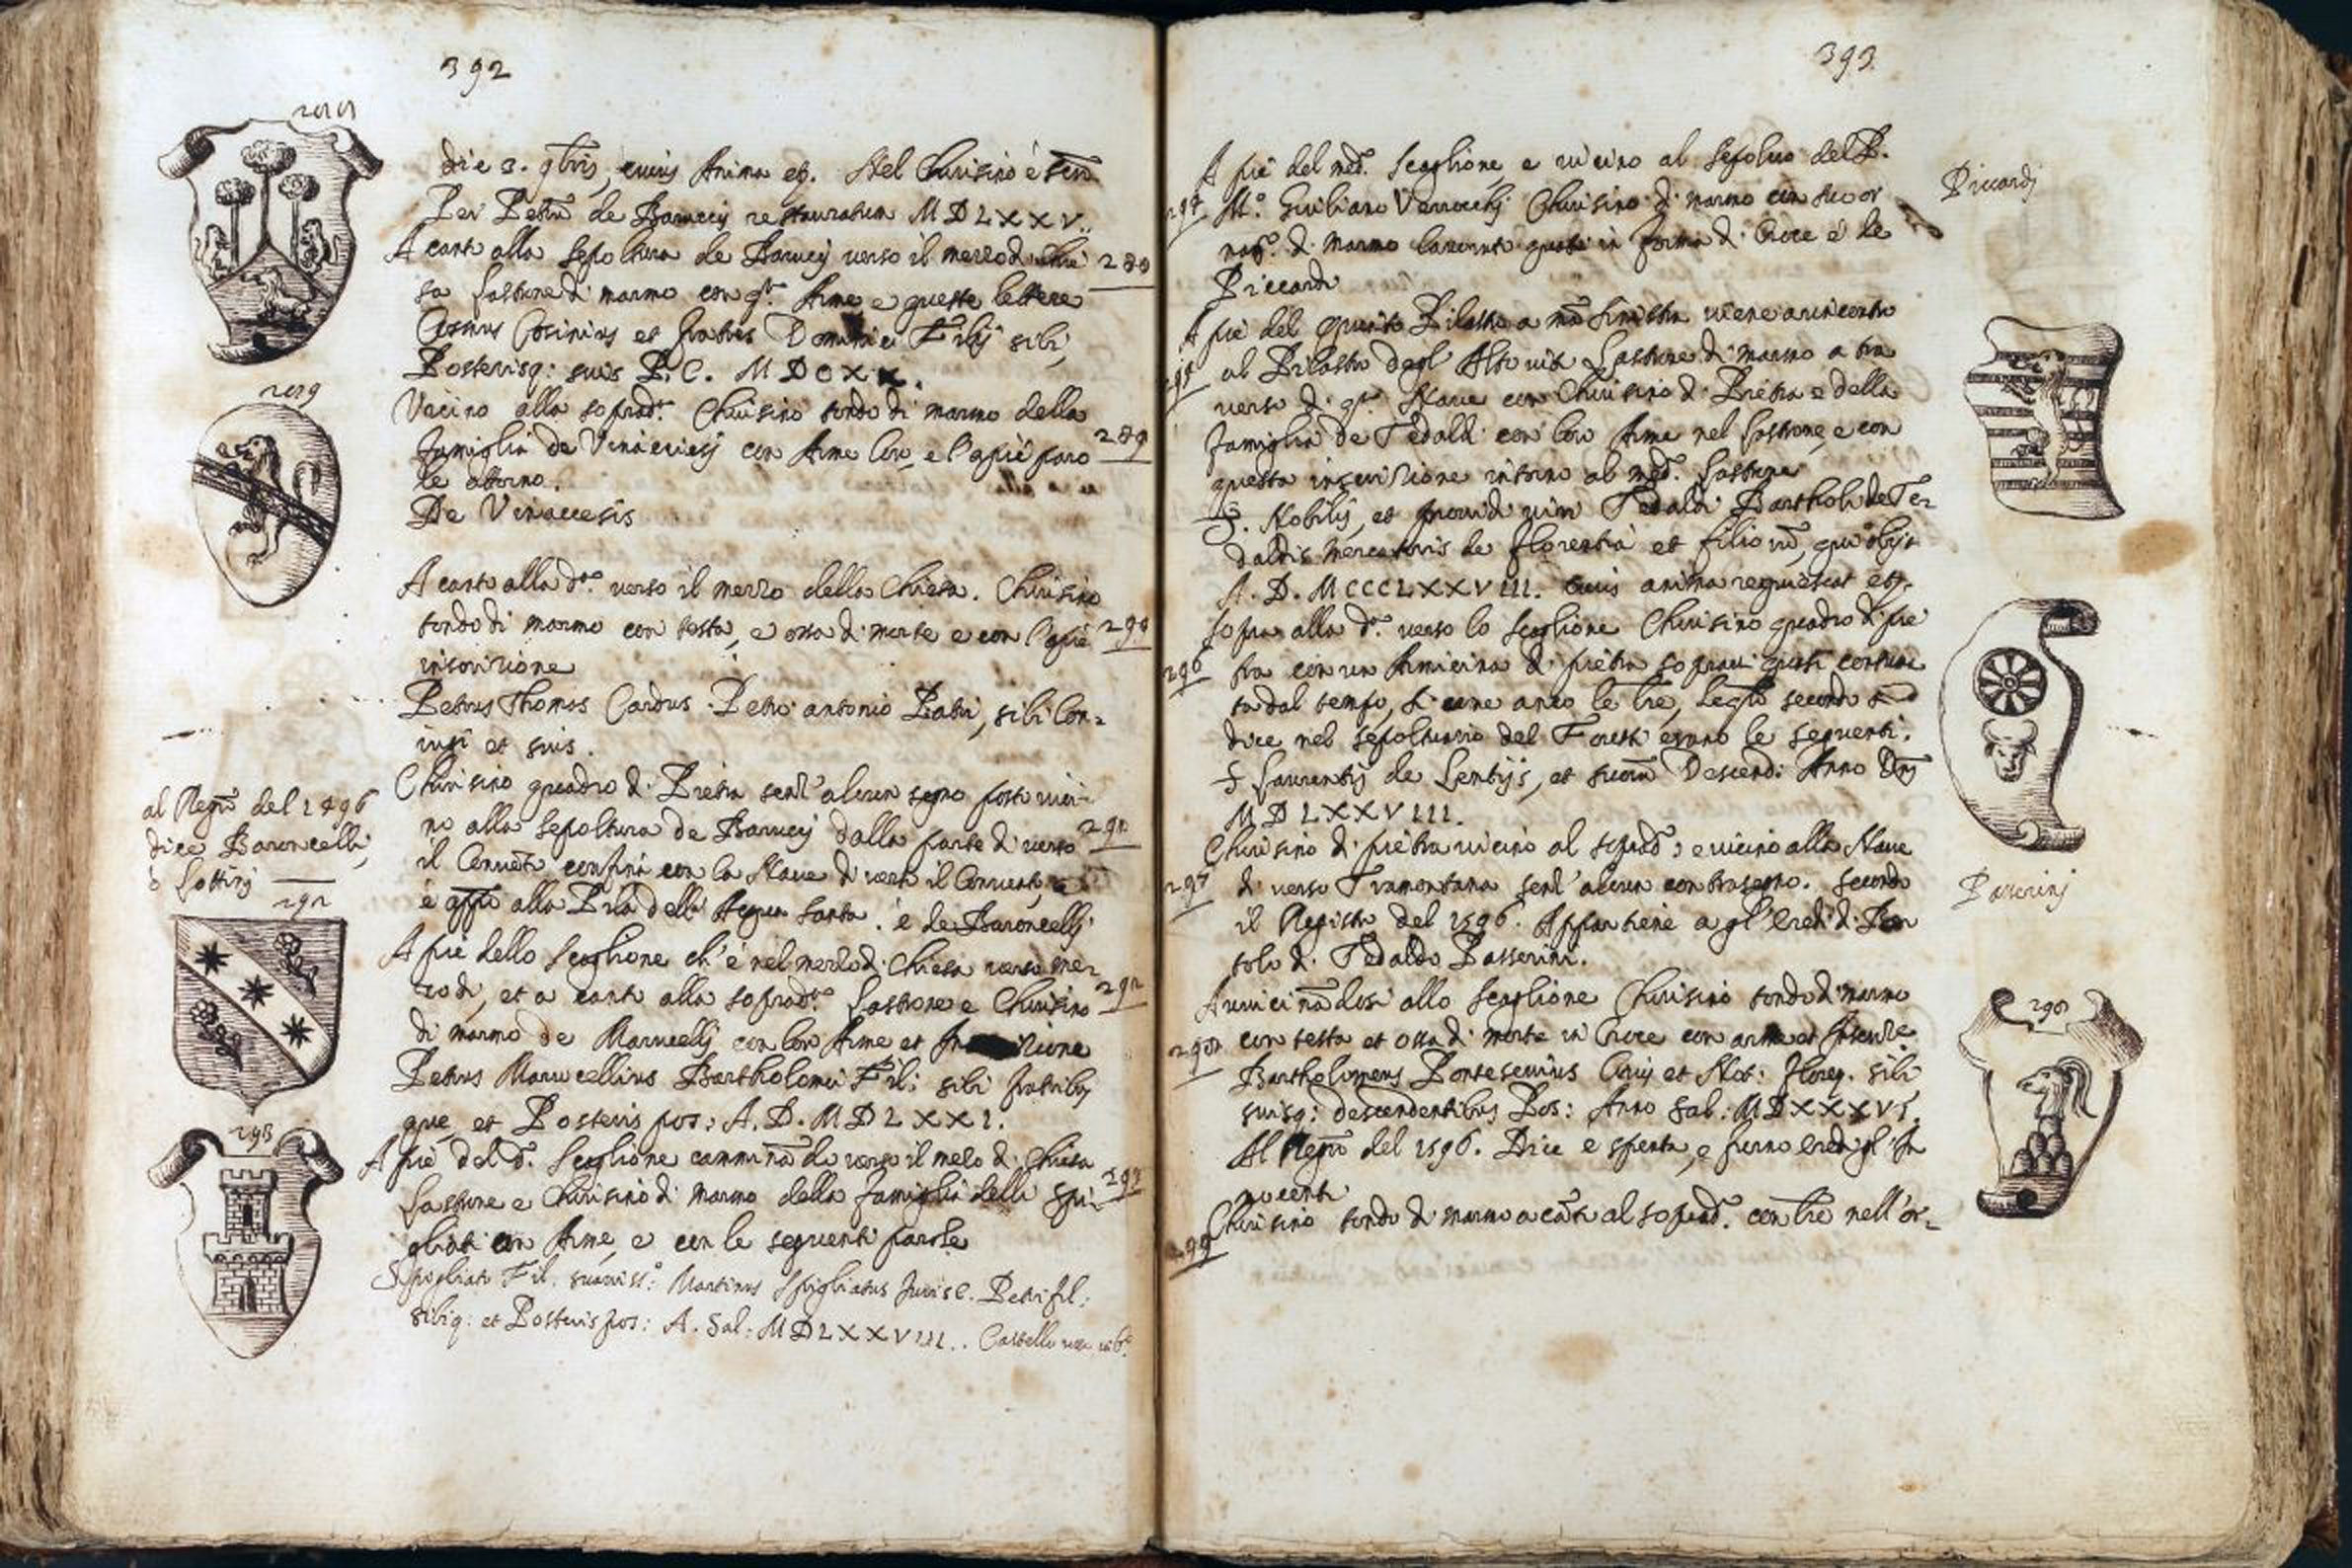 392
die 3. 9bris, cuius Anima etc. Nel Chiusino è
Per Petru de Baruccij restauratum MDLXXV.
A canto alla Sepoltura de Barucij verso il mezzo di Chie
288
sa Lastrone di marmo con qta. Arme e queste lettere
Cosinius et fratres Dominici Filij sibi,
Posterisq: suis P. C.
Vicino alla sopradta. Chiusino tondo di marmo della
289
famiglia de Vinacciesi con Arme loro, e l'apiè paro
le attorno.
De Vinaccesis
A canto alla dta. verso il mezzo della Chiesa. Chiusino
tondo di marmo con testa, e ossa di morte e con l'apiè
290
inscrizione
Petrus Thomas Cardus Petro antonio Patri, sibi Con=
iugi et suis.
Chiusino quadro di Pietra senz'alcun segno posto vici-
no alla sepoltura de Barucij dalla parte di verso
291
il Convento, confina con la Nave di verso il Convento,
è appo alla Pila dell'Acqua Santa. è de Baroncelli
al Regro del 1496
dice Baroncelli,
o Lottinj
A piè dello Scaglione ch'è nel mezzo di Chiesa verso mez
zodì, et a canto alla sopradta Lastrone e Chiusino
292
di marmo de Marucelli con loro Arme et
Petrus Marucellius Bartholomei Fili: sibi fratribus
que et Posteris pos: A. D. MDLXXI.
A piè del do. Scaglione camminādo verso il mezo di Chiesa
293
Lastrone e Chiusino di marmo della famiglia delli Spi-
gliati con Arme, e con le seguenti parole
Spigliato Fil. suaviss:o Martinus Spigliatus Juris C. Petri fil:
sibiq: et Posteris pos: A. Sal: MDLXXVIII.. Castello
288
289
292
293
393
A piè del medo. Scaglione, e vicino al Sepolcro del P.
294
Mo. Giuliano Verrocchij Chiusino di marmo con suo or
nato. di marmo lavorato quasi in forma di Croce è de
Riccardi
Riccardj
A piè del quinto Pilastro a mā sinistra viene a rincontro
295
al Pilastro degl'Altoviti Lastrone di marmo a tra
verso di qta. Nave con Chiusino di Pietra e della
famiglia de Tedaldi con loro Arme nel Lastrone, e con
questa inscrizione intorno al medo. Lastrone
S. Nobilis, et providi viri Tedaldi Bartholi de Te=
daldis mercatoris de Florentia et filioru, qui obijt
A. D. MCCCLXXVIII. Cuius anima requiescat etc.
Sopra alla da. verso lo Scaglione Chiusino quadro di pie
296
tra con un Armicina di pietra sopravi quasi consuma
ta dal tempo, sì come anco le lre, le quali secondo
dice nel sepoltuario del Foresti erano le seguenti.
S Laurentij de Lentijs, et suoru Descend: Anno Dnj
MDLXXVIII.
Chiusino di pietra vicino al sopado; e vicino alla Nave
297
di verso Tramontana senz'alcun contrasegno. Secondo
il Registro del 1596. Appartiene a gl'Eredi di Bar
tolo di Tedaldo Passerini.
Passerinj
Avvicinādosi allo Scaglione Chiusino tondo di marmo
298
con testa et ossa di morte in Croce con arme et Inscrize
Bartholomeus Civis et Nob: Floren. sibi
suisq: descendentibus Pos: Anno Sal: MDXXXVI.
Al Regro del 1596. Dice è spenta, e furno eredi gl'In
nocenti
Chiusino tondo di marmo a cāto al soprado. con lre nell'or=
299
298